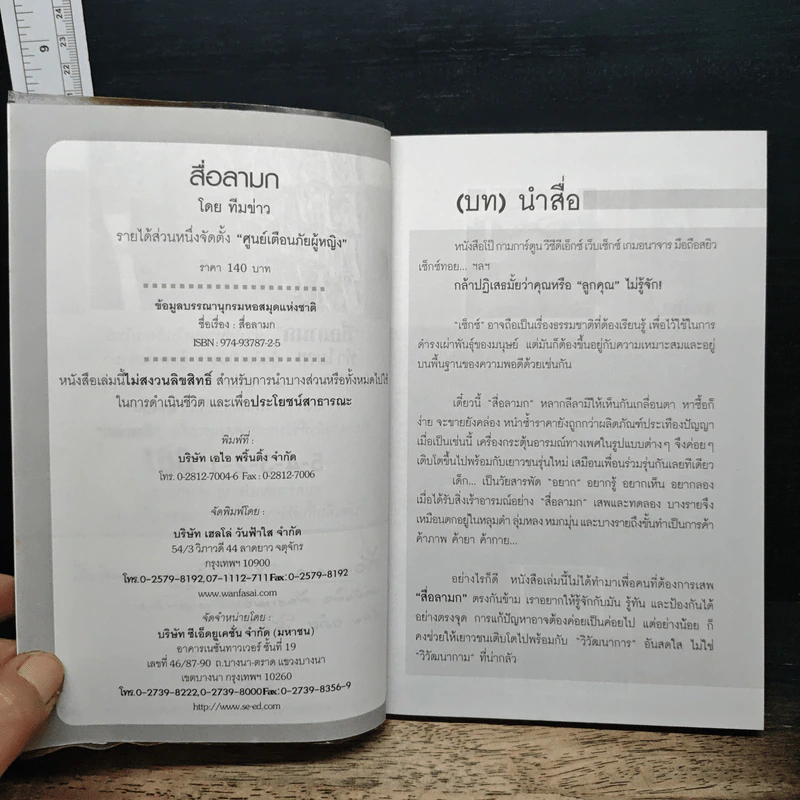 9
24
23
22
สื่อลามก
โดย ทีมข่าว
รายได้ส่วนหนึ่งจัดตั้ง "ศูนย์เตือนภัยผู้หญิง"
ราคา 140 บาท
ข้อมูลบรรณานุกรมหอสมุดแห่งชาติ
ชื่อเรื่อง : สื่อลามก
ISBN : 974-93787-2-5
หนังสือเล่มนี้ไม่สงวนลิขสิทธิ์ สำหรับการนำบางส่วนหรือทั้งหมดไปใช้
ในการดำเนินชีวิต และเพื่อประโยชน์สาธารณะ
พิมพ์ที่ :
บริษัท เอไอ พริ้นติ้ง จำกัด
โทร. 0-2812-7004-6 Fax : 0-2812-7006
จัดพิมพ์โดย :
บริษัท เฮลโล่ วันฟ้าใส จำกัด
54/3 วิภาวดี 44 ลาดยาว จตุจักร
กรุงเทพฯ 10900
โทร.0-2579-8192,07-1112-711 Fax : 0-2579-8192
www.wanfasai.com
จัดจำหน่ายโดย :
บริษัท ซีเอ็ดยูเคชั่น จำกัด (มหาชน)
อาคารเนชั่นทาวเวอร์ ชั้นที่ 19
เลขที่ 46/87-90 ถ.บางนา-ตราด แขวงบางนา
เขตบางนา กรุงเทพฯ 10260
โทร.0-2739-8222,0-2739-8000 Fax : 0-2739-8356-9
http://www.se-ed.com
(บท) นำสื่อ
หนังสือโป๊ กามการ์ตูน วีซีดีเอ็กซ์ เว็บเซ็กซ์ เกมอนาจาร มือถือสยิว
เซ็กซ์ทอย... ฯลฯ
กล้าปฏิเสธมั้ยว่าคุณหรือ "ลูกคุณ" ไม่รู้จัก!
"เซ็กซ์" อาจถือเป็นเรื่องธรรมชาติที่ต้องเรียนรู้ เพื่อไว้ใช้ในการ
ดำรงเผ่าพันธุ์ของมนุษย์ แต่มันก็ต้องขึ้นอยู่กับความเหมาะสมและอยู่
บนพื้นฐานของความพอดีด้วยเช่นกัน
เดี๋ยวนี้ "สื่อลามก" หลากลีลามีให้เห็นกันเกลื่อนตา หาซื้อก็
ง่าย จะขายยังคล่อง หนำซ้ำราคายังถูกกว่าผลิตภัณฑ์ประเทืองปัญญา
เมื่อเป็นเช่นนี้ เครื่องกระตุ้นอารมณ์ทางเพศในรูปแบบต่างๆ จึงค่อยๆ
เติบโตขึ้นไปพร้อมกับเยาวชนรุ่นใหม่ เสมือนเพื่อนร่วมรุ่นกันเลยทีเดียว
เด็ก... เป็นวัยสารพัด "อยาก" อยากรู้ อยากเห็น อยากลอง
เมื่อได้รับสิ่งเร้าอารมณ์อย่าง "สื่อลามก" เสพและทดลอง บางรายจึง
เหมือนตกอยู่ในหลุมดำ ลุ่มหลง หมกมุ่น และบางรายถึงขั้นทำเป็นการค้า
ค้าภาพ ค้ายา ค้ากาย...
อย่างไรก็ดี หนังสือเล่มนี้ไม่ได้ทำมาเพื่อคนที่ต้องการเสพ
"สื่อลามก" ตรงกันข้าม เราอยากให้รู้จักกับมัน รู้ทัน และป้องกันได้
อย่างตรงจุด การแก้ปัญหาอาจต้องค่อยเป็นค่อยไป แต่อย่างน้อย ก็
คงช่วยให้เยาวชนเติบโตไปพร้อมกับ "วิวัฒนาการ" อันสดใส ไม่ใช่
"วิวัฒนากาม" ที่น่ากลัว